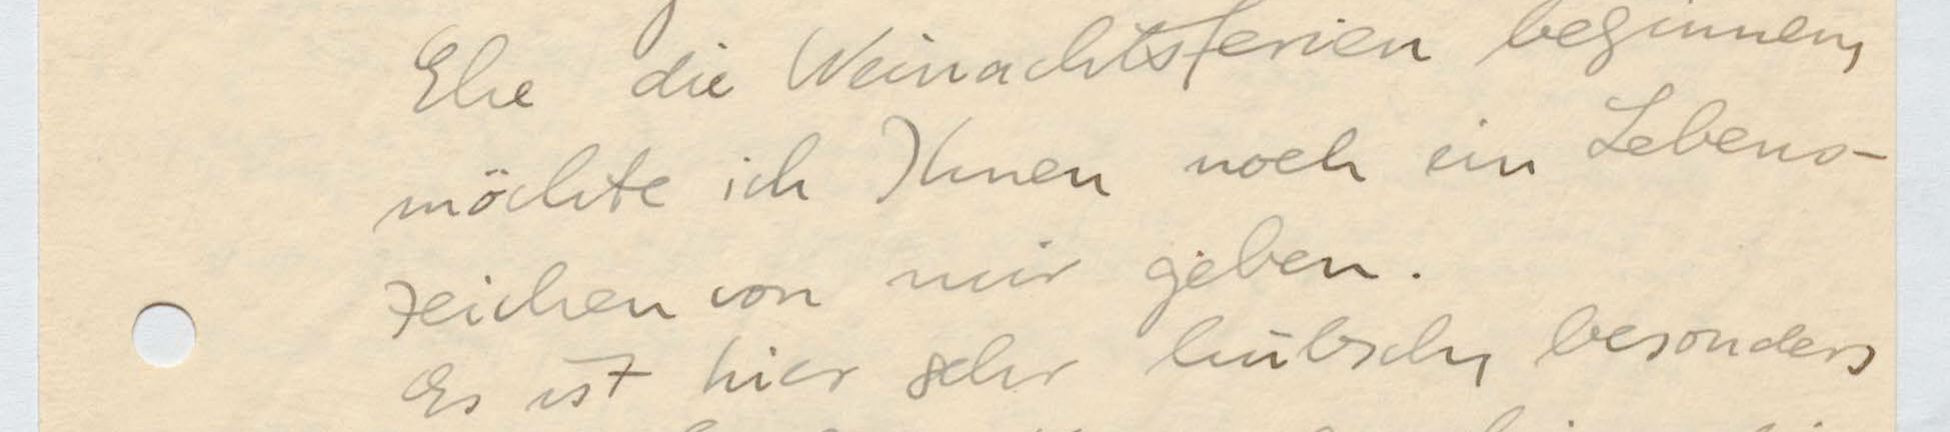 Ehe die Weinachtsferien beginnen,
möchte ich Ihnen noch ein Lebens-
zeichen von mir geben.
Es ist hier sehr hübsch, besonders